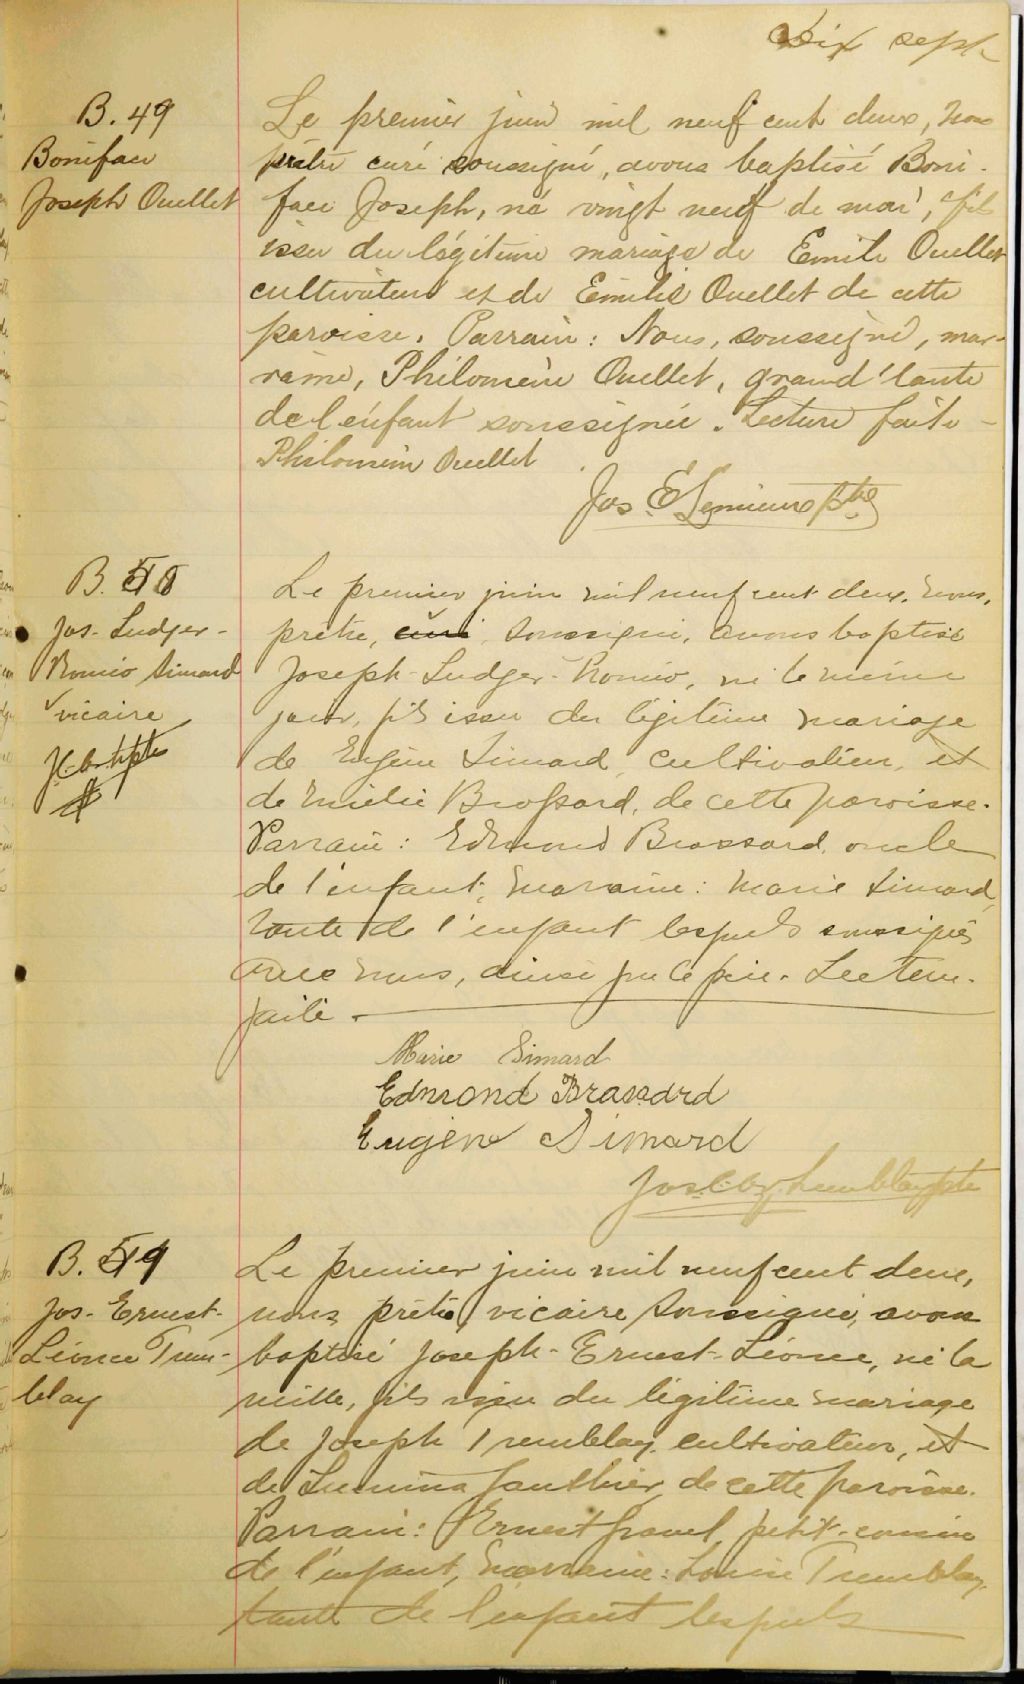 Dix sept
B. 49
Boniface
Joseph Ouellet
Le premier juin mil neuf cent deux, nous
prêtre curé soussigné, avons baptisé Boni-
face Joseph, né vingt neuf de mai, fils
issu du légitime mariage de Emile Ouellet
cultivateur et de Emilie Ouellet de cette
paroisse. Parrain: Nous, soussigné, mar-
raine, Philomène Ouellet, grand'tante
de l'enfant soussignée. Lecture faite -
Philomène Ouellet
Jos E Lemieux Ptre
B.
Jos- Ludger-
Romeo Simard
vicaire
Le premier juin mil neuf cent deux, nous,
prêtre, curé, soussigné, avons baptisé
Joseph-Ludger-Romeo, né le même
jour, fils issu du légitime mariage
de Eugène Simard, cultivateur, et
de Emélie Brossard, de cette paroisse.
Parrain: Edmond Brassard, oncle
de l'enfant; marraine: Marie Simard,
tante de l'enfant lesquels soussignés
avec nous, ainsi que le père. Lecture
faite.
Marie Simard
Edmond Brassard
Eugène Simard
Tremblay ptre
B.
Jos- Ernest-
Léonce Trem-
blay
Le premier juin mil neuf cent deux,
nous prêtre, vicaire soussigné, avons
baptisé Joseph-Ernest-Léonce, né la
veille, fils issu du légitime mariage
de Joseph Tremblay, cultivateur, et
de Lumina Gauthier, de cette paroisse.
Parrain: Ernest Gravel, petit-cousin
de l'enfant, marraine: Louise Tremblay,
tante de l'enfant lesquels